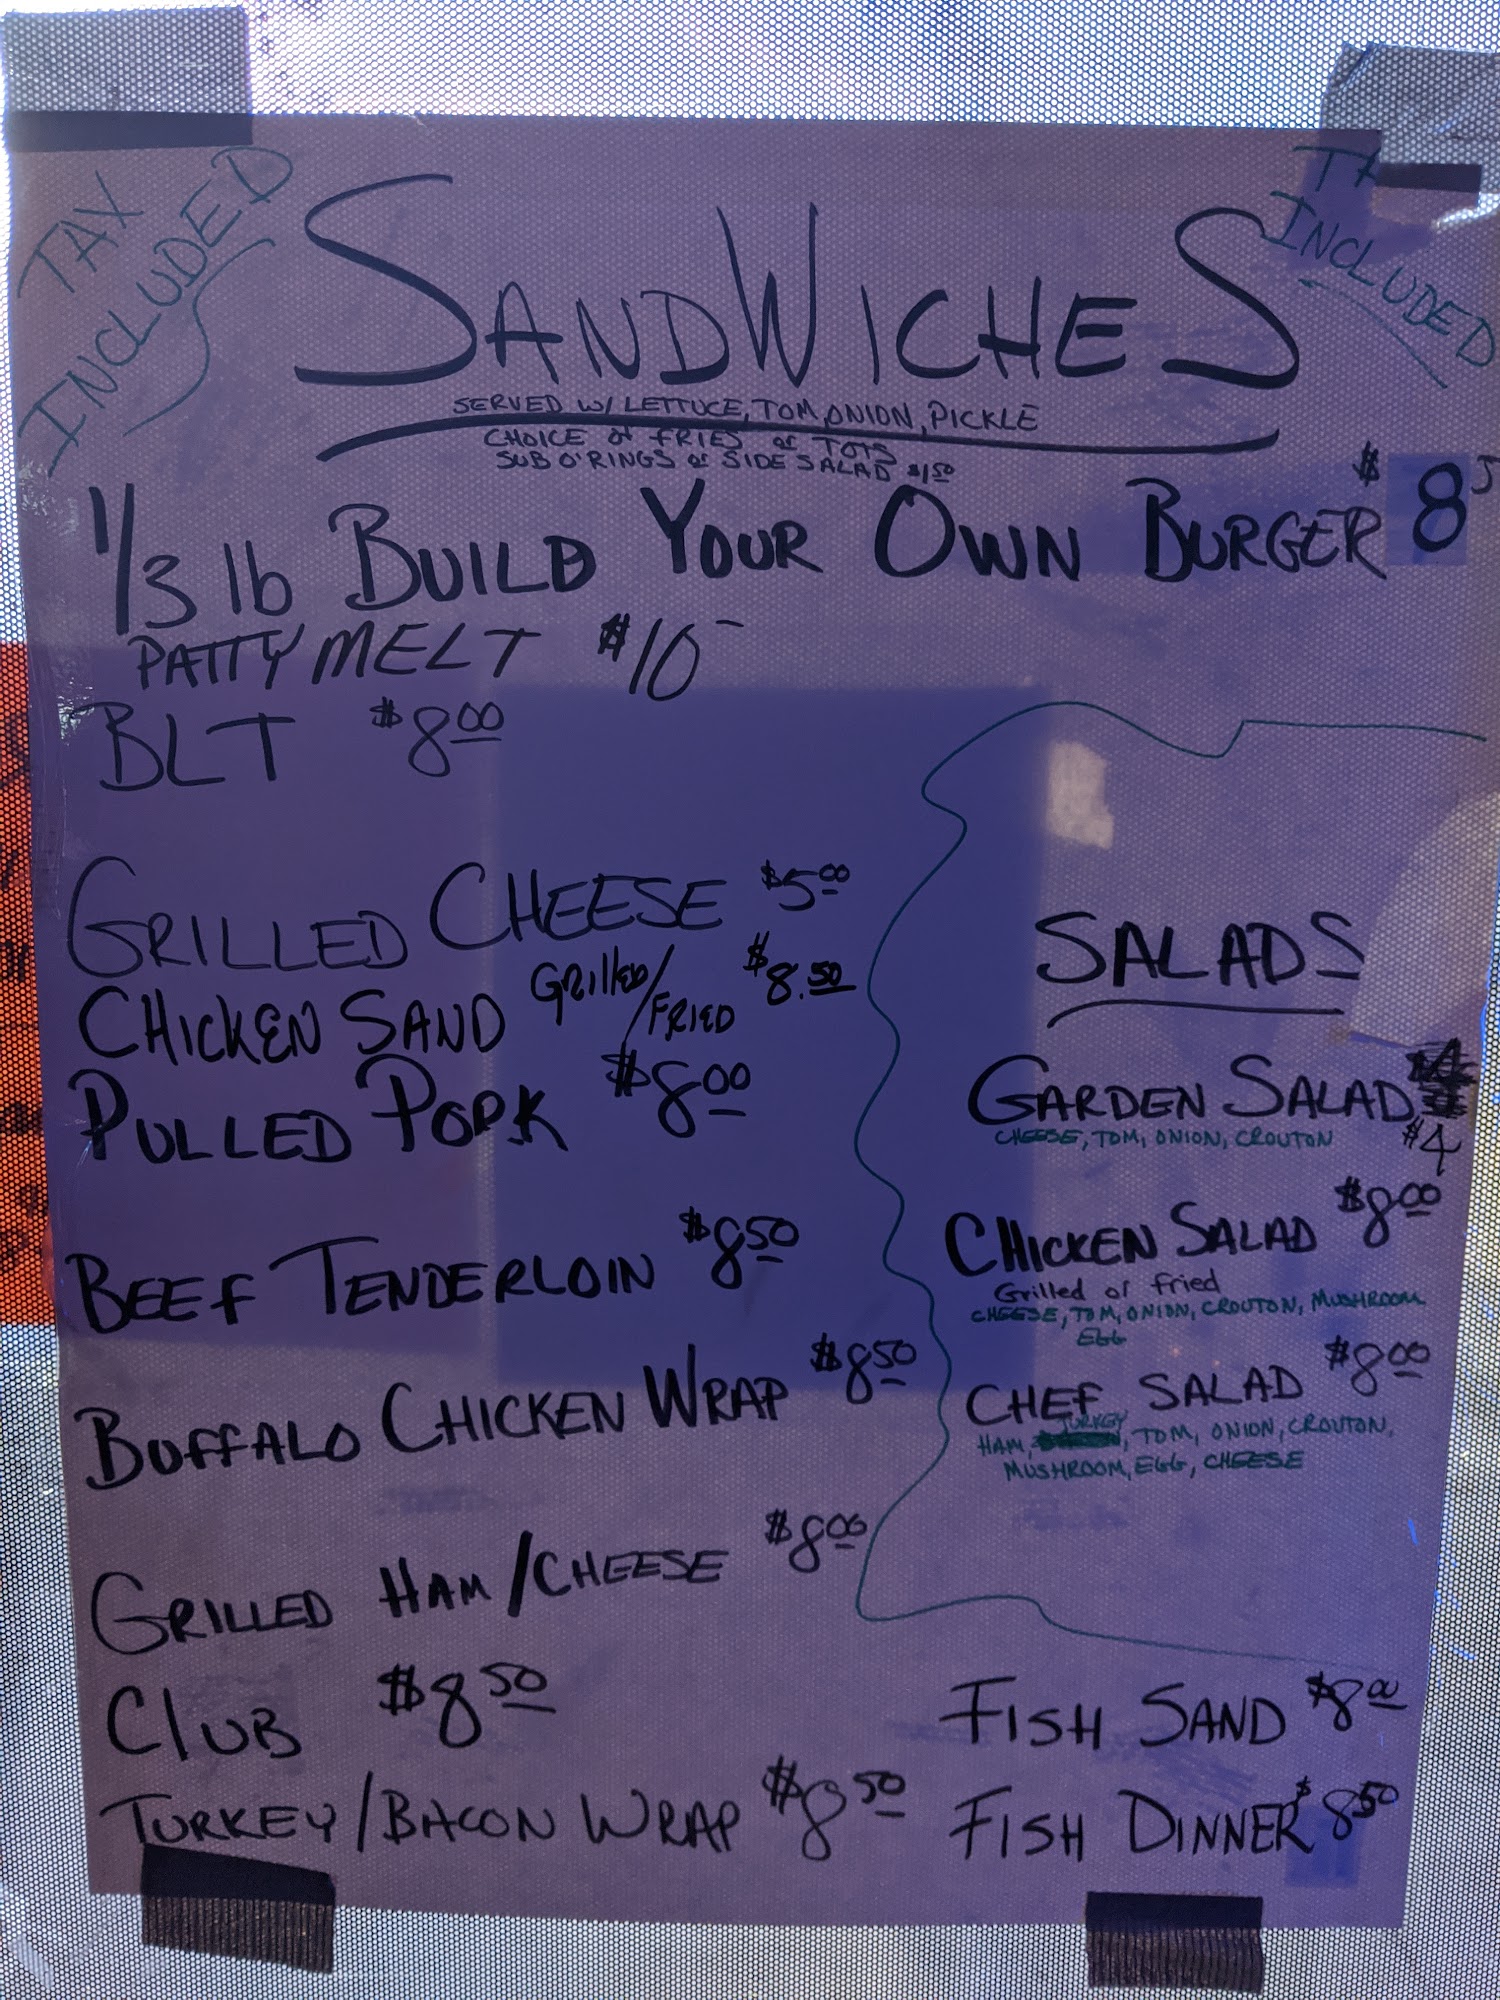 TAX
INCLUDED
INCLUDED
SANDWICHES
SERVED W/ LETTUCE, TOM, ONION, PICKLE
CHOICE of FRIES or TOTS
SUB O'RINGS or SIDE SALAD $1.50
1/3 lb BUILD YOUR OWN BURGER $8
PATTY MELT $10-
BLT $8.00
GRILLED CHEESE $5.00
CHICKEN SAND GRILLED/FRIED $8.50
PULLED PORK $8.00
BEEF TENDERLOIN $8.50
BUFFALO CHICKEN WRAP $8.50
GRILLED HAM/CHEESE $8.00
CLUB $8.50
TURKEY/BACON WRAP $8.50
SALADS
GARDEN SALAD
CHEESE, TOM, ONION, CROUTON $4
CHICKEN SALAD $8.00
Grilled or fried
CHEESE, TOM, ONION, CROUTON, MUSHROOM
EGG
CHEF SALAD $8.00
HAM, TURKEY, TOM, ONION, CROUTON,
MUSHROOM, EGG, CHEESE
FISH SAND $8.00
FISH DINNER $8.50